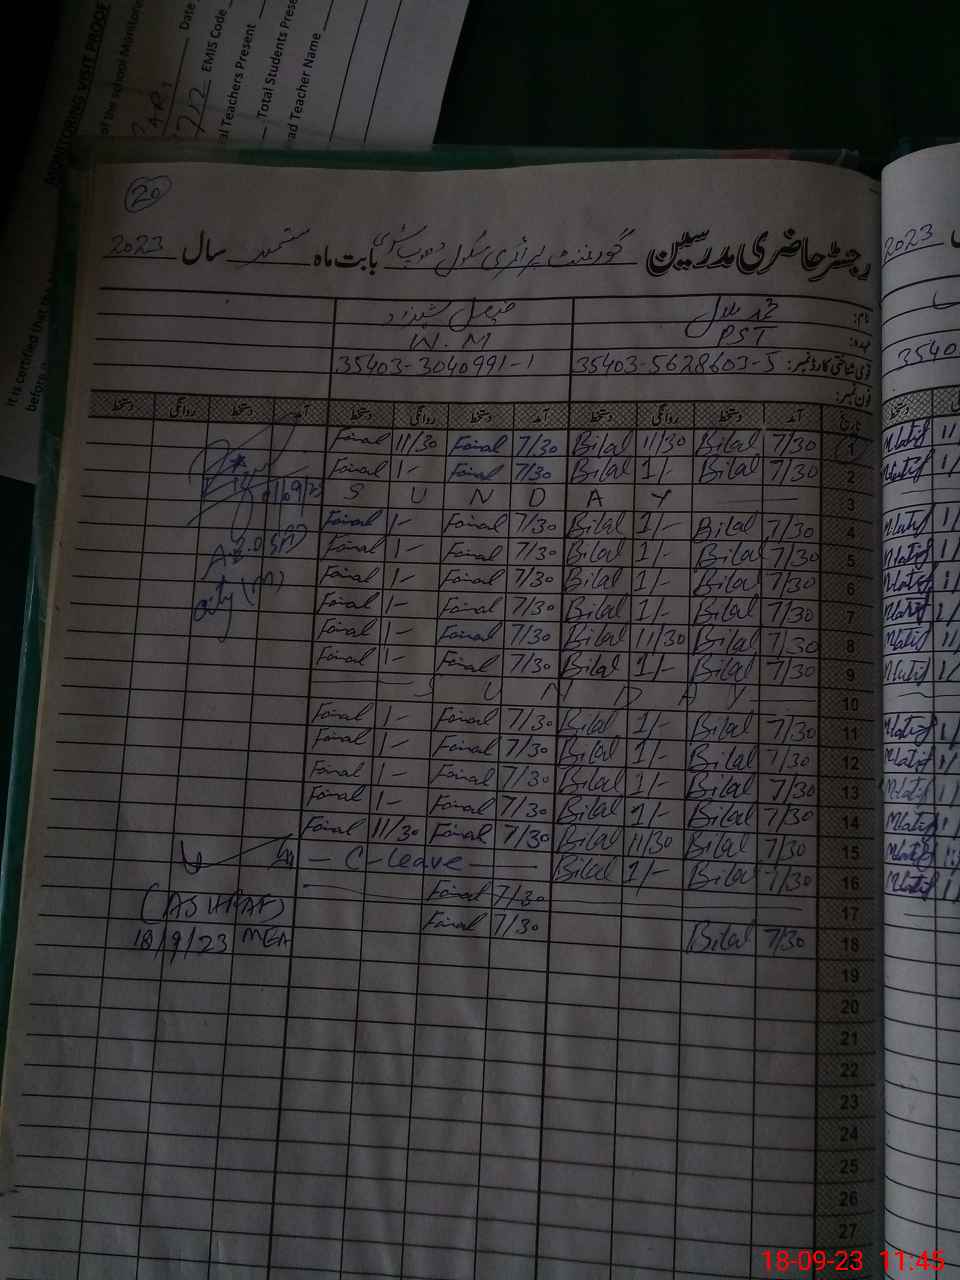 MONITORING VISIT PROOF
of the School Monitored
Date
EMIS Code
Teachers Present
Total Students Prese
ad Teacher Name
It is certified that
before
20
رجسٹر حاضری مدرسین گورنمنٹ پرائمری سکول بابت ماہ ستمبر سال 2023
نام: محمد بلال فیصل شہزاد
عہدہ: PST W.M
قومی شناختی کارڈ نمبر: 35403-5628603-5 35403-3040991-1
فون نمبر:
تاریخ آمد دستخط روانگی دستخط آمد دستخط روانگی دستخط آمد دستخط روانگی دستخط
1 7/30 Bilal 11/30 Bilal 7/30 Faisal 11/30 Faisal
2 7/30 Bilal 1/- Bilal 7/30 Faisal 1/- Faisal
3 S U N D A Y
4 7/30 Bilal 1/- Bilal 7/30 Faisal 1/- Faisal
5 7/30 Bilal 1/- Bilal 7/30 Faisal 1/- Faisal
6 7/30 Bilal 1/- Bilal 7/30 Faisal 1/- Faisal
7 7/30 Bilal 1/- Bilal 7/30 Faisal 1/- Faisal
8 7/30 Bilal 11/30 Bilal 7/30 Faisal 1/- Faisal
9 7/30 Bilal 1/- Bilal 7/30 Faisal 1/- Faisal
10 S U N D A Y
11 7/30 Bilal 1/- Bilal 7/30 Faisal 1/- Faisal
12 7/30 Bilal 1/- Bilal 7/30 Faisal 1/- Faisal
13 7/30 Bilal 1/- Bilal 7/30 Faisal 1/- Faisal
14 7/30 Bilal 1/- Bilal 7/30 Faisal 1/- Faisal
15 7/30 Bilal 11/30 Bilal 7/30 Faisal 11/30 Faisal
16 7/30 Bilal 1/- Bilal - C-leave -
17 7/30 Faisal
18 7/30 Bilal 7/30 Faisal
19
20
21
22
23
24
25
26
27
(ASHRAF)
18/9/23 MEA
2023
3540
Mlatif
18-09-23 11:45